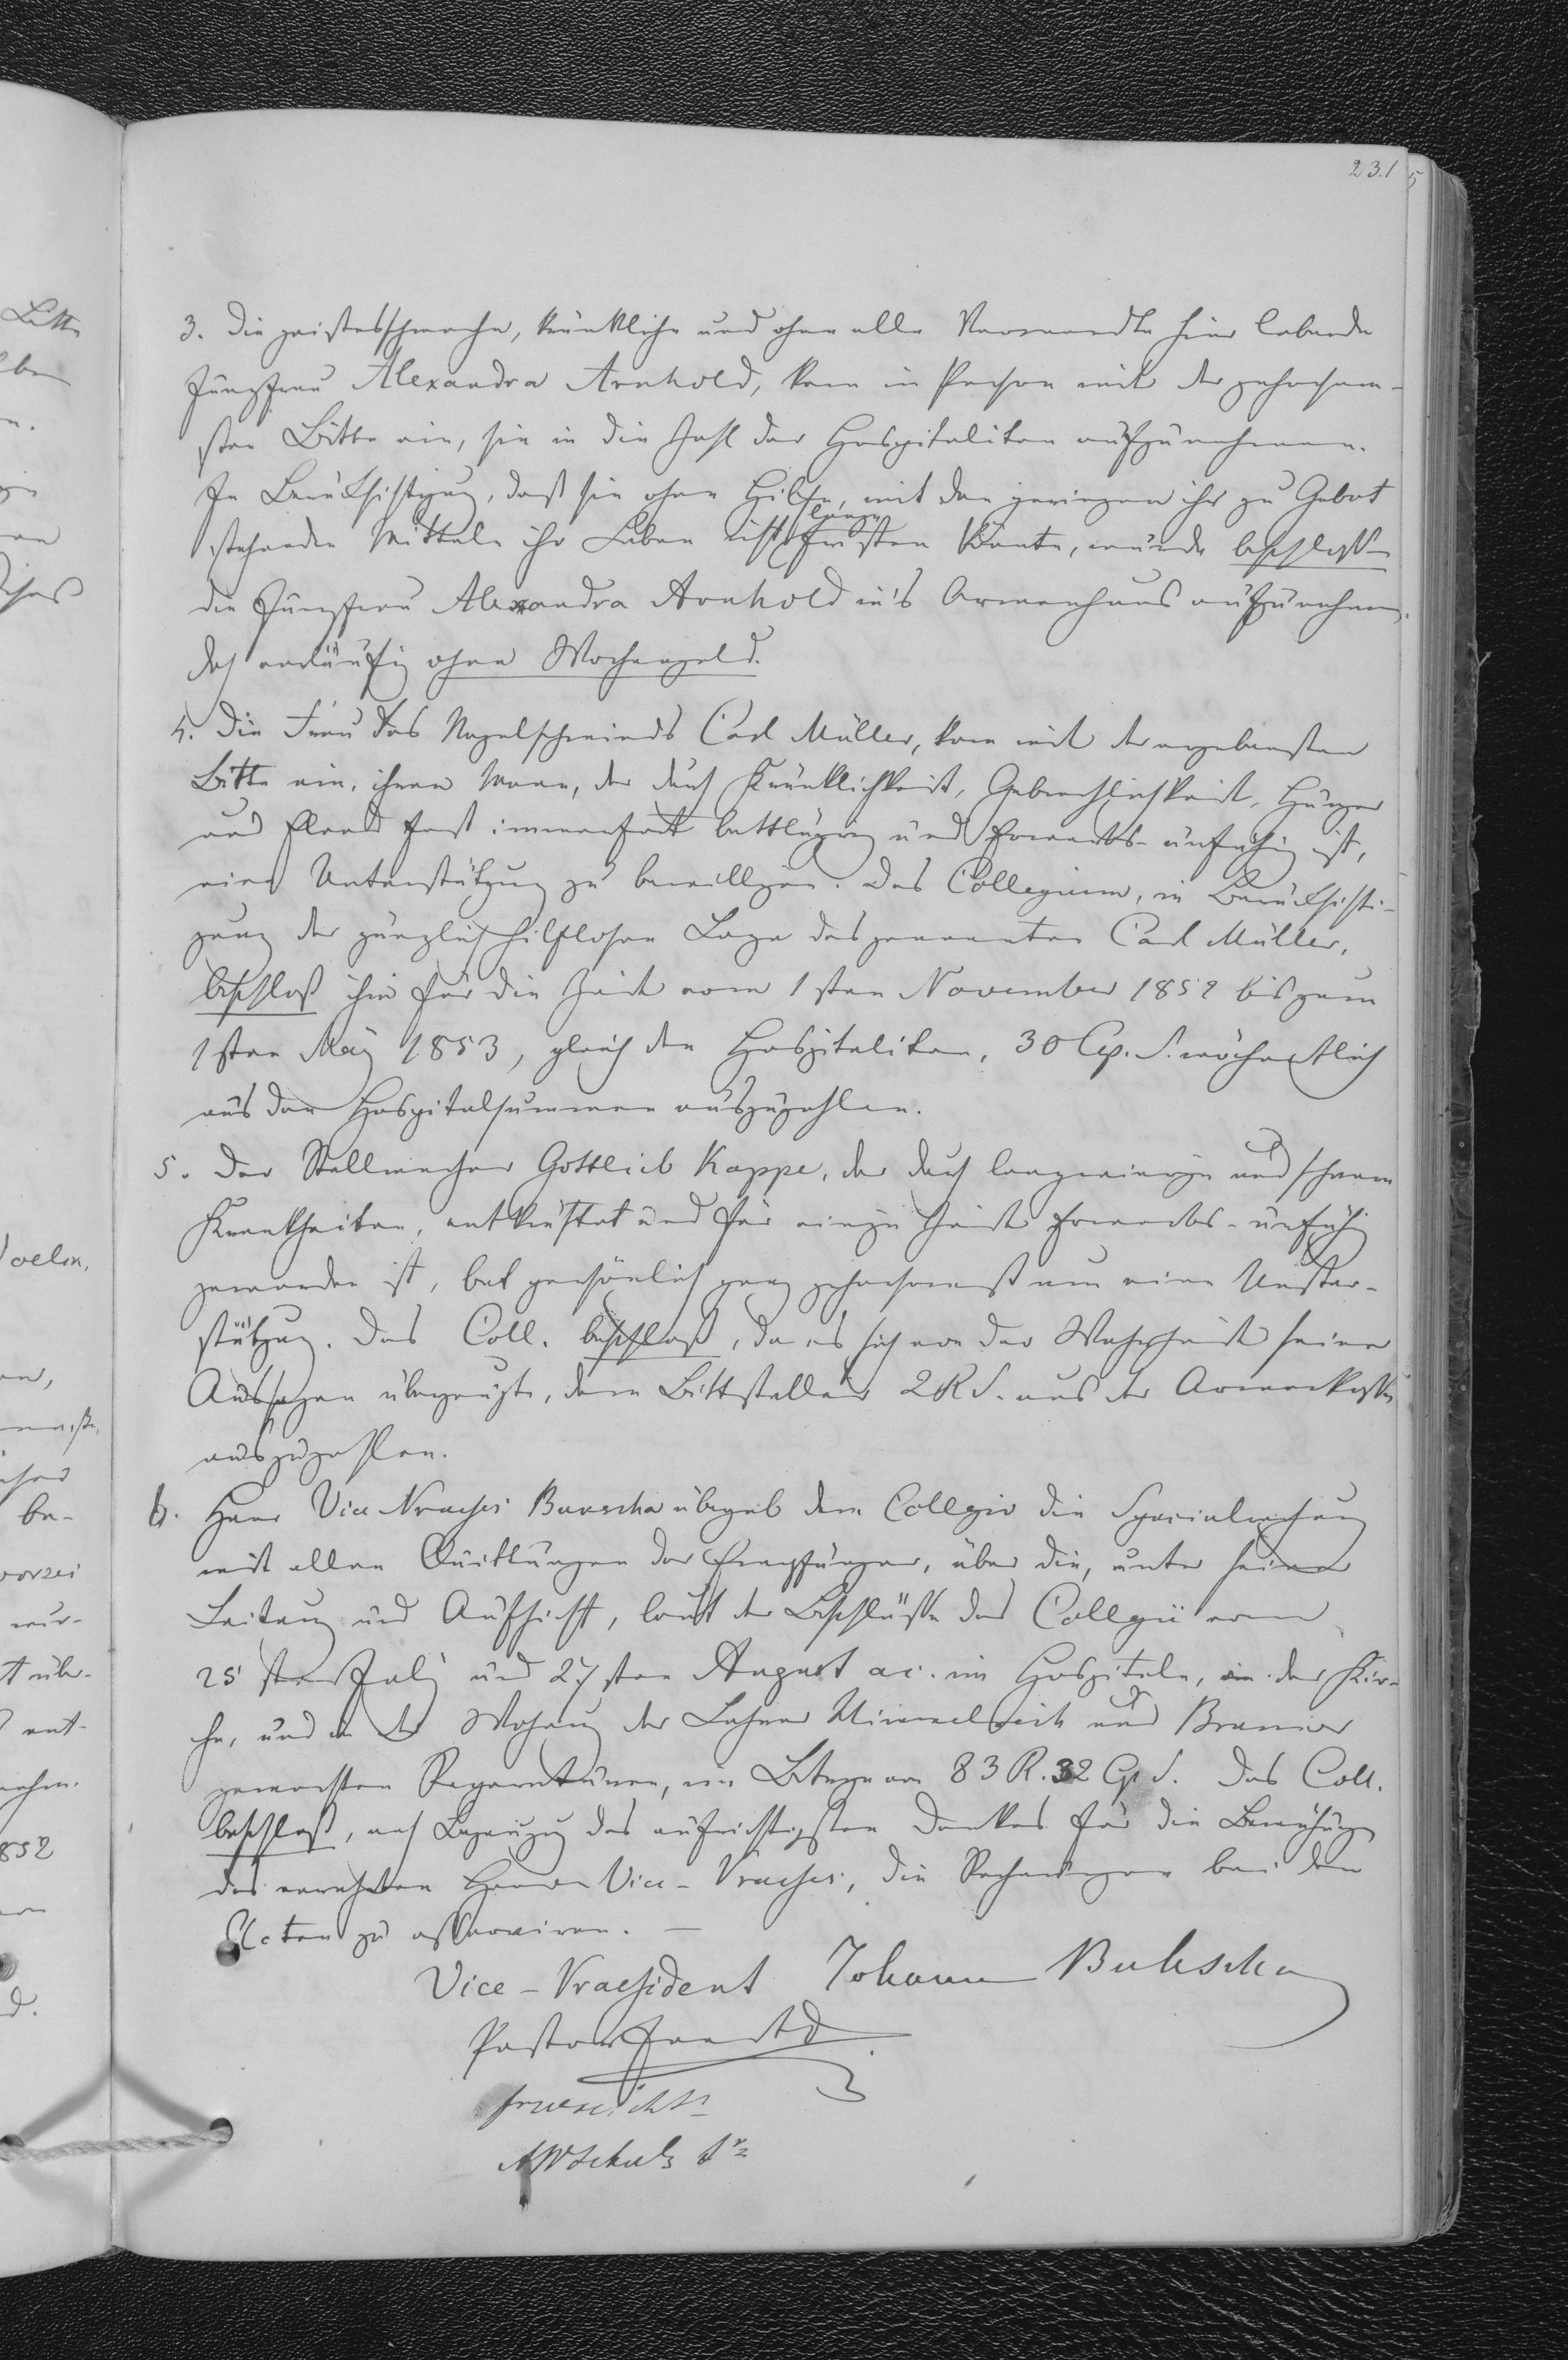 231
3. Die geistesschwache, kränkliche und ohne alle Verwandte hier lebende
Jungfrau Alexandra Arnhold, kam in Person mit der gehorsam-
sten Bitte ein, sie in die Zahl der Hospitaliten aufzunehmen.
In Berücksichtigung, daß sie ohne Hilfe, mit den geringen ihr zu Gebot
stehenden Mitteln ihr Leben nicht länger fristen könnte, wurde beschlossen
die Jungfrau Alexandra Arnhold in's Armenhaus aufzunehmen,
doch vorläufig ohne Wochengeld.
4. Die Frau des Nagelschmieds Carl Müller, kam mit der ergebensten
Bitte ein, ihrem Mann, der durch Kränklichkeit, Gebrechlichkeit, Hunger
und Elend fast immerfort bettlägrig und Erwerbs-unfähig ist,
eine Unterstützung zu bewilligen. Das Collegium, in Berücksichti-
gung der gänzlich hilflosen Lage des genannten Carl Müller,
beschloß ihm für die Zeit vom 1sten November 1852 bis zum
1sten May 1853, gleich den Hospitaliten, 30 Cp. S. wöchentlich
aus den Hospitalsummen auszuzahlen.
5. Der Stellmacher Gottlieb Kappe, der durch langwierige und schwere
Krankheiten, entkräftet und für einige Zeit Erwerbs-unfähig
geworden ist, bat persönlich ganz gehorsamst um eine Unter-
stützung. Das Coll. beschloß, da es sich von der Wahrheit seiner
Aussagen überzeugte, dem Bittsteller 2 R S. aus der Armenkasse
auszuzahlen.
6. Herr Vice Praeses Buescha übergab dem Collegio die Specialrechnung
mit allen Quittungen der Empfänger, über die, unter seiner
Leitung und Aufsicht, laut der Beschlüsse des Collegii vom
25sten July und 27sten August a.c. im Hospitale, in der Kir-
che, und in der Wohnung der Lehrer Himmelreich und
gemachten Reparaturen, im Betrage von 83 R. 32 Cp S. Das Coll.
beschloß, nach Bezeugung des aufrichtigsten Dankes für die Bemühungen
des verehrten Herrn Vice-Praeses, die Rechnungen bei den
Acten zu asserviren. —
Vice-Praesident Johann
Pastor
A W Schulz